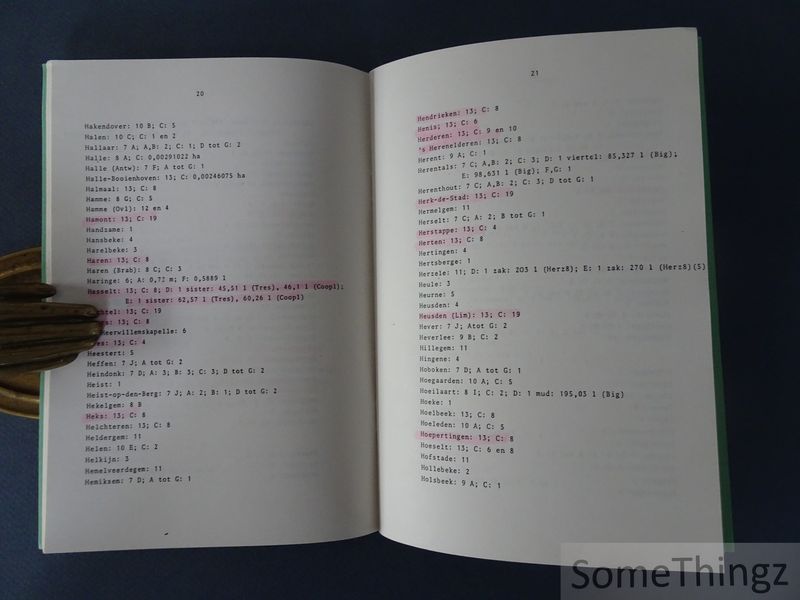 20
Hakendover: 10 B; C: 5
Halen: 10 C; C: 1 en 2
Hallaar: 7 A; A,B: 2; C: 1; D tot G: 2
Halle: 8 A; C: 0,00291022 ha
Halle (Antw): 7 F; A tot G: 1
Halle-Booienhoven: 13; C: 0,00246075 ha
Halmaal: 13; C: 8
Hamme: 8 G; C: 5
Hamme (Ovl): 12 en 4
Hamont: 13; C: 19
Handzame: 1
Hansbeke: 4
Harelbeke: 3
Haren: 13; C: 8
Haren (Brab): 8 C; C: 3
Haringe: 6; A: 0,72 m; F: 0,5889 l
Hasselt: 13; C: 8; D: 1 sister: 45,51 l (Tres), 46,1 l (Coopl);
E: 1 sister: 62,57 l (Tres), 60,26 l (Coopl)
chtel: 13; C: 19
s: 13; C: 8
erwillemskapelle: 6
es: 13; C: 4
Heestert: 5
Heffen: 7 J; A tot G: 2
Heindonk: 7 D; A: 3; B: 3; C: 3; D tot G: 2
Heist: 1
Heist-op-den-Berg: 7 J; A: 2; B: 1; D tot G: 2
Hekelgem: 8 B
Heks: 13; C: 8
Helchteren: 13; C: 8
Heldergem: 11
Helen: 10 E; C: 2
Helkijn: 3
Hemelveerdegem: 11
Hemiksem: 7 D; A tot G: 1
21
Hendrieken: 13; C: 8
Henis; 13; C: 6
Herderen: 13; C: 9 en 10
's Herenelderen: 13; C: 8
Herent: 9 A; C: 1
Herentals: 7 C; A,B: 2; C: 3; D: 1 viertel: 85,327 l (Big);
E: 98,631 l (Big); F,G: 1
Herenthout: 7 C; A,B: 2; C: 3; D tot G: 1
Herk-de-Stad: 13; C: 19
Hermelgem: 11
Herselt: 7 C; A: 2; B tot G: 1
Herstappe: 13; C: 4
Herten: 13; C: 8
Hertingen: 4
Hertsberge: 1
Herzele: 11; D: 1 zak: 203 l (Herz8); E: 1 zak: 270 l (Herz8)(5)
Heule: 3
Heurne: 5
Heusden: 4
Heusden (Lim): 13; C: 19
Hever: 7 J; Atot G: 2
Heverlee: 9 B; C: 2
Hillegem: 11
Hingene: 4
Hoboken: 7 D; A tot G: 1
Hoegaarden: 10 A; C: 5
Hoeilaart: 8 I; C: 2; D: 1 mud: 195,03 l (Big)
Hoeke: 1
Hoelbeek: 13; C: 8
Hoeleden: 10 A; C: 5
Hoepertingen: 13; C: 8
Hoeselt: 13; C: 6 en 8
Hofstade: 11
Hollebeke: 2
Holsbeek: 9 A; C: 1
SomeThingz